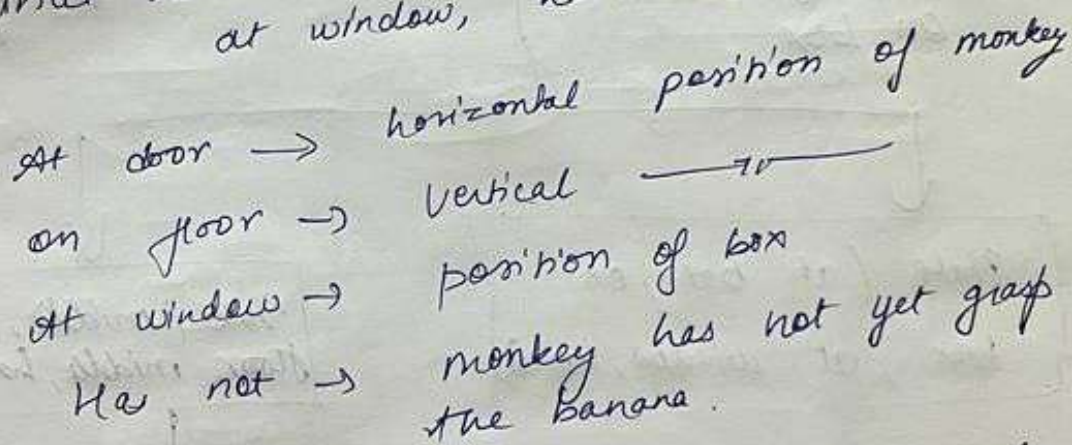 at window,
At door → horizontal position of monkey
on floor → vertical —〃—
At window → position of box
Has not → monkey has not yet giasp
the banana.